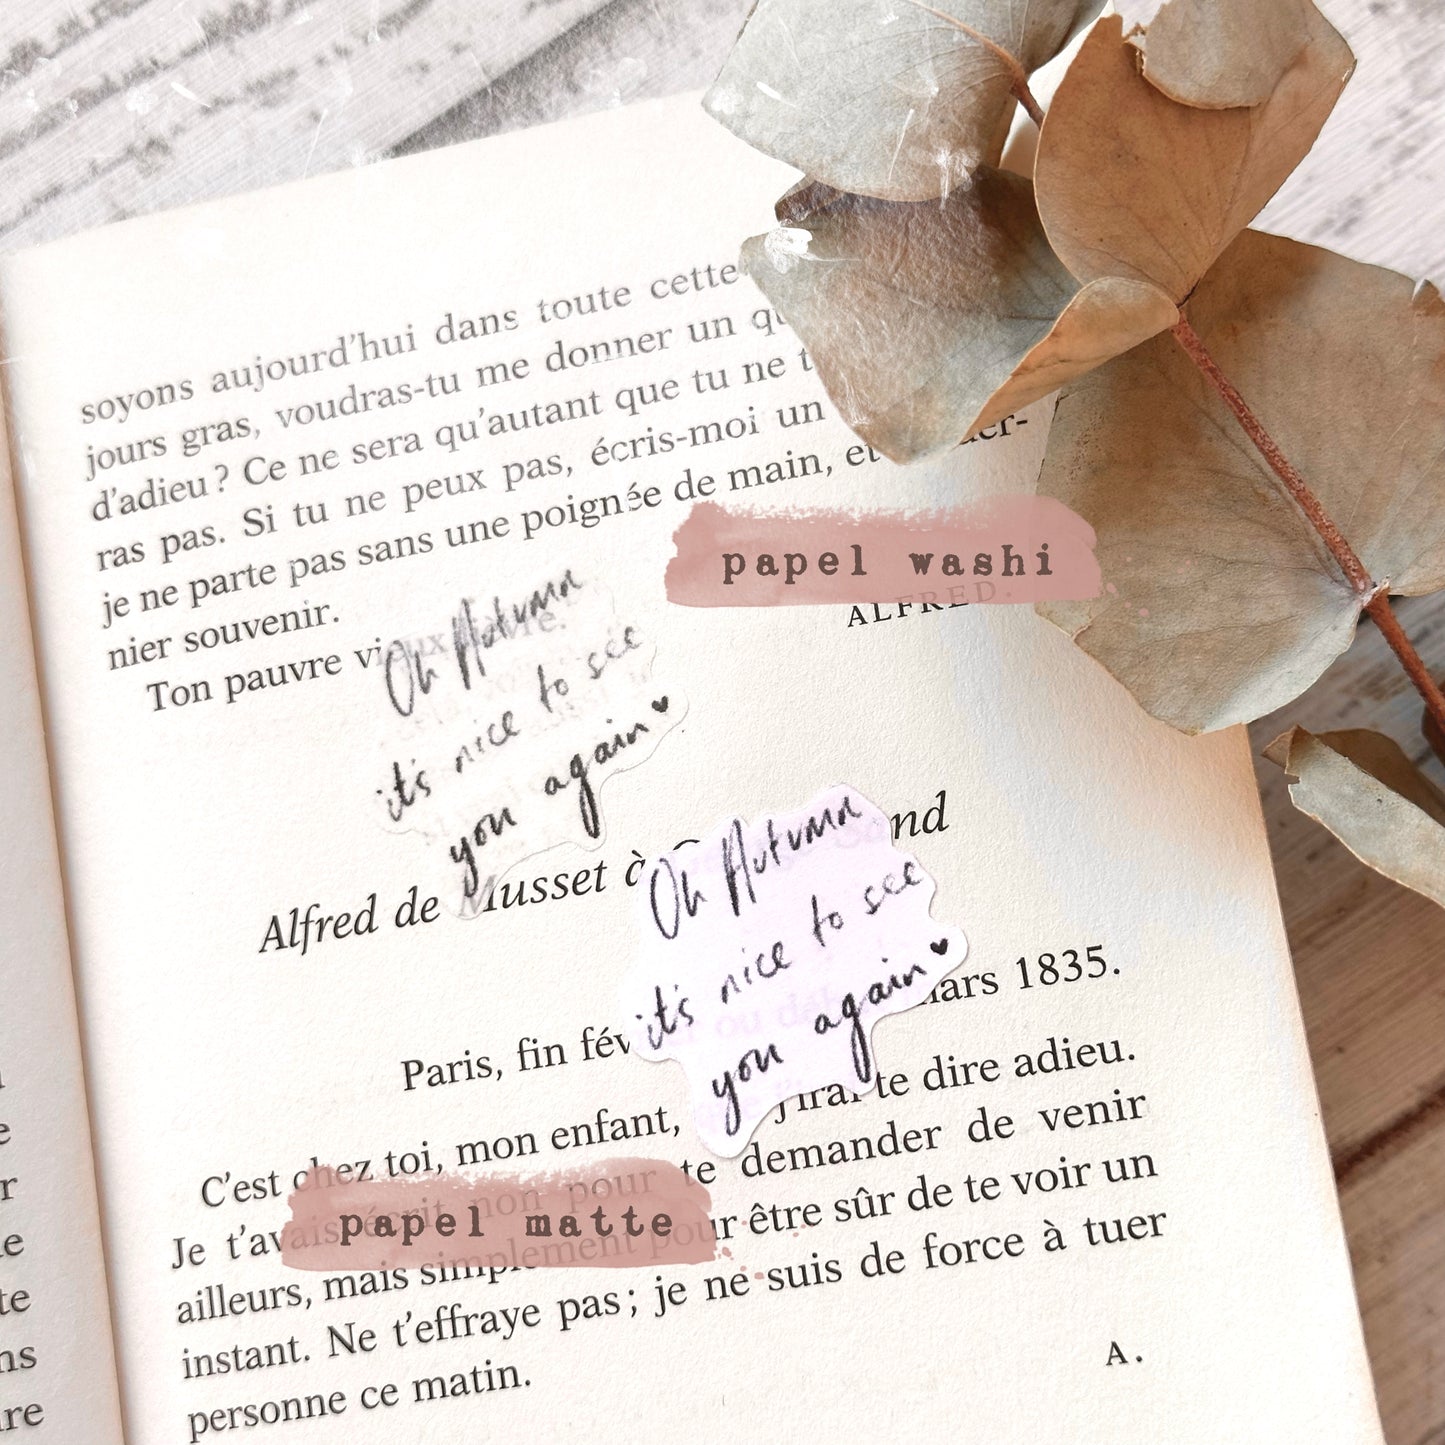 soyons aujourd'hui dans toute cette
jours gras, voudras-tu me donner un
d'adieu ? Ce ne sera qu'autant que tu ne
ras pas. Si tu ne peux pas, écris-moi un
je ne parte pas sans une poignée de main, et
nier souvenir.
papel washi
Ton pauvre
ALFRED.
Oh Autumn
it's nice to see
you again ♥
Alfred de Musset à
Oh Autumn
it's nice to see
you again ♥
Paris, fin mars 1835.
C'est chez toi, mon enfant, j'irai te dire adieu.
Je t'avais écrit non pour te demander de venir
papel matte
ailleurs, mais simplement pour être sûr de te voir un
instant. Ne t'effraye pas ; je ne suis de force à tuer
personne ce matin.
A.